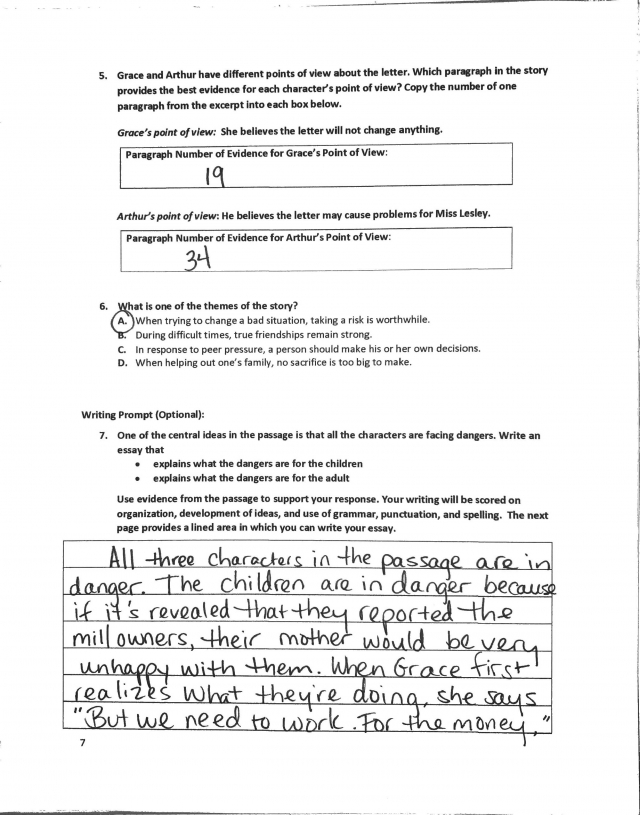 5. Grace and Arthur have different points of view about the letter. Which paragraph in the story
provides the best evidence for each character's point of view? Copy the number of one
paragraph from the excerpt into each box below.
Grace's point of view: She believes the letter will not change anything.
Paragraph Number of Evidence for Grace's Point of View:
19
Arthur's point of view: He believes the letter may cause problems for Miss Lesley.
Paragraph Number of Evidence for Arthur's Point of View:
34
6. What is one of the themes of the story?
A. When trying to change a bad situation, taking a risk is worthwhile.
B. During difficult times, true friendships remain strong.
C. In response to peer pressure, a person should make his or her own decisions.
D. When helping out one's family, no sacrifice is too big to make.
Writing Prompt (Optional):
7. One of the central ideas in the passage is that all the characters are facing dangers. Write an
essay that
• explains what the dangers are for the children
• explains what the dangers are for the adult
Use evidence from the passage to support your response. Your writing will be scored on
organization, development of ideas, and use of grammar, punctuation, and spelling. The next
page provides a lined area in which you can write your essay.
All three characters in the passage are in
danger. The children are in danger because
if it's revealed that they reported the
mill owners, their mother would be very
unhappy with them. When Grace first
realizes what they're doing, she says
"But we need to work. For the money,"
7